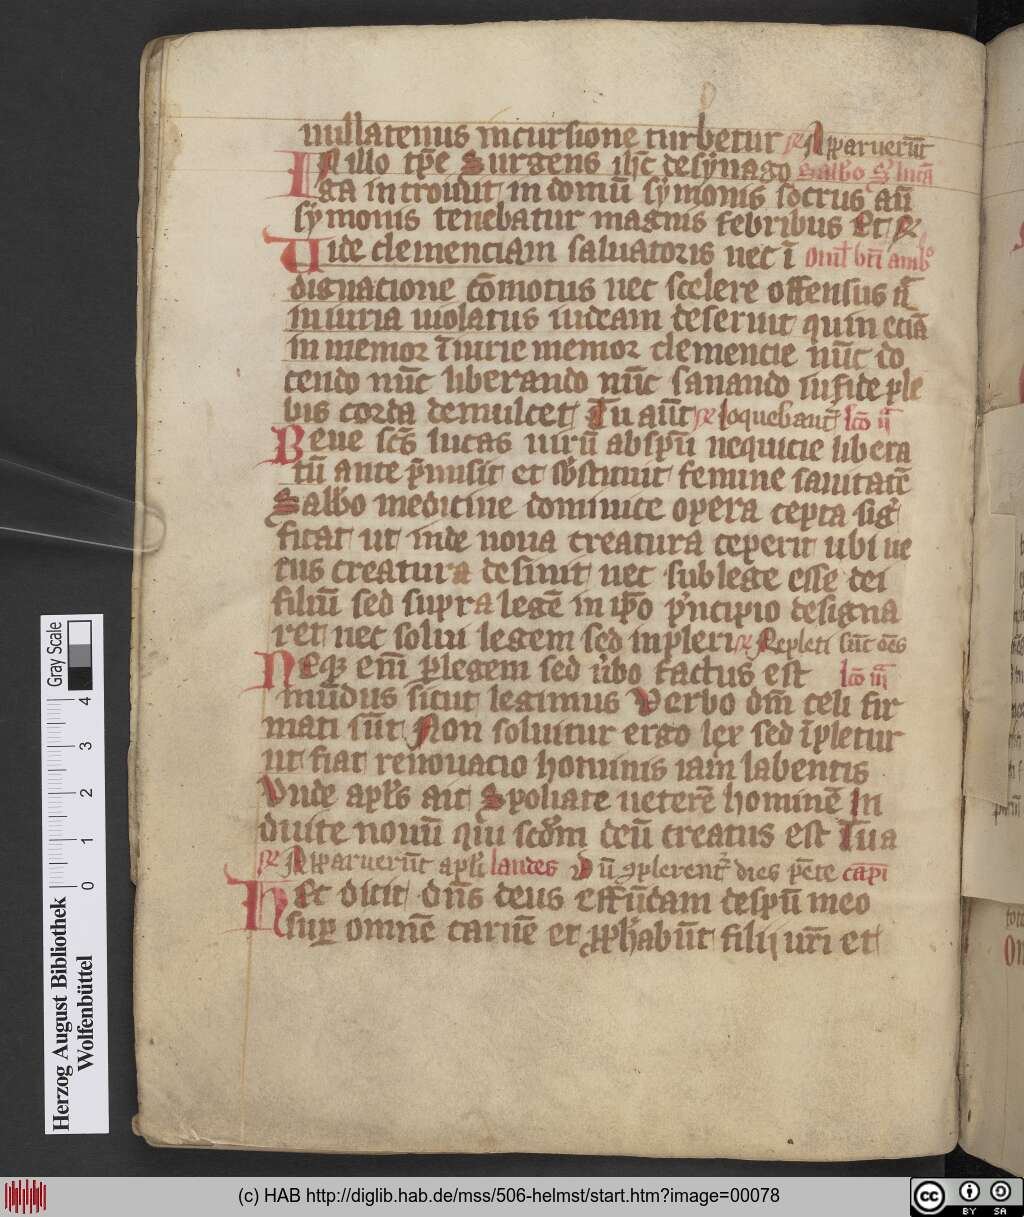 nullatenus incursione turbetur ℟ Apparuerūt
IN illo tp̄e Surgens ih̄c de synago Sabbo S' lucā
ga introiuit in domū symonis socrus aū
symonis tenebatur magnis febribus Et ℟
Uide clementiam saluatoris nec ī Omł bt̄i amb°
dignacione cōmotus nec scelere offensus n̄
iniuria uiolatus iudeam deserit quin eciā
inmemor īiurie memor clemencie nūc do
cendo nūc liberando nūc sanando īfide ple
bis corda demulcet Tu aūt ℟ loquebant᷑ lc̄o ii
Bene sc̄s lucas uirū ab sp̄u nequicie libera
tū ante p̄misit et sb̄stituit femine sanitatē
Sabbo medicine dominice opera cepta sig᷑
ficat ut inde noua creatura ceperit ubi ue
tus creatura desinit nec sub lege esse dei
filiū sed supra legē in ip̄o p᷑ncipio designa
ret nec solui legem sed inpleri ℟ Repleti sūt oēs
Neqꝫ em̄ p̱legem sed ūbo factus est lc̄o iii
mūdus sicut legimus Verbo dn̄i celi fir
mati sūt Non soluitur ergo lex sed īpletur
ut fiat renouacio hominis iam labentis
Vnde apl̄s ait Spoliate ueterē hominē In
duite nouū qui scd̄m deū creatus est Tu a
℟ Apparuerūt apl̄i laudes Dū ꝯplerent᷑ dies pēte capī
Hec dicit dn̄s deus effūdam de sp̄u meo
sup̱ omnē carnē et ꝓph̄abūt filii ur̄i et
Herzog August Bibliothek
Wolfenbüttel
0 1 2 3 4
Gray Scale
(c) HAB http://diglib.hab.de/mss/506-helmst/start.htm?image=00078
cc BY SA